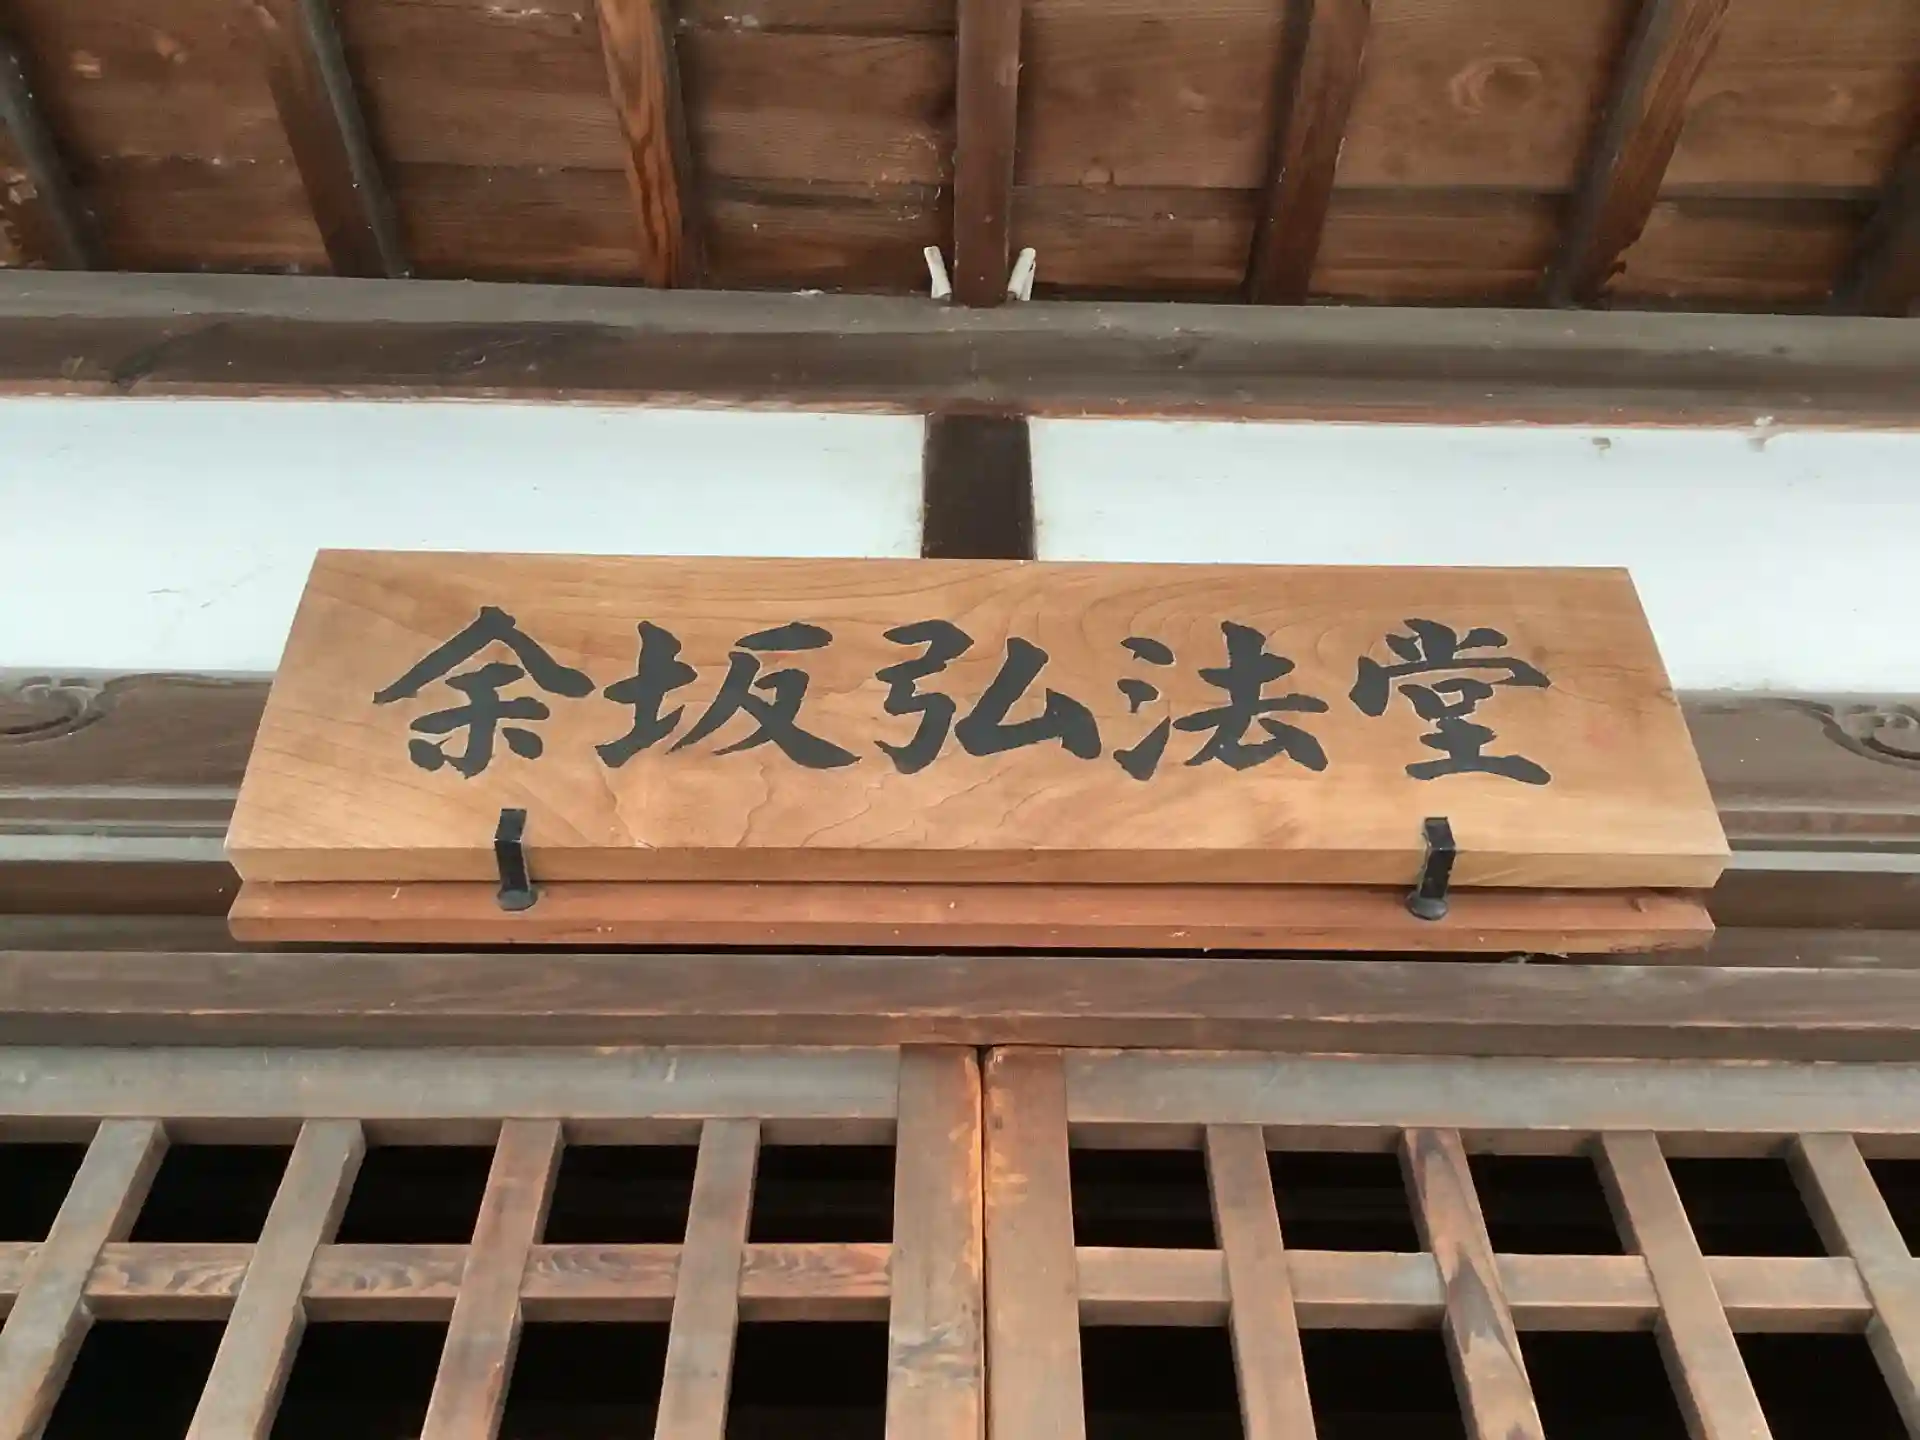 余坂弘法堂